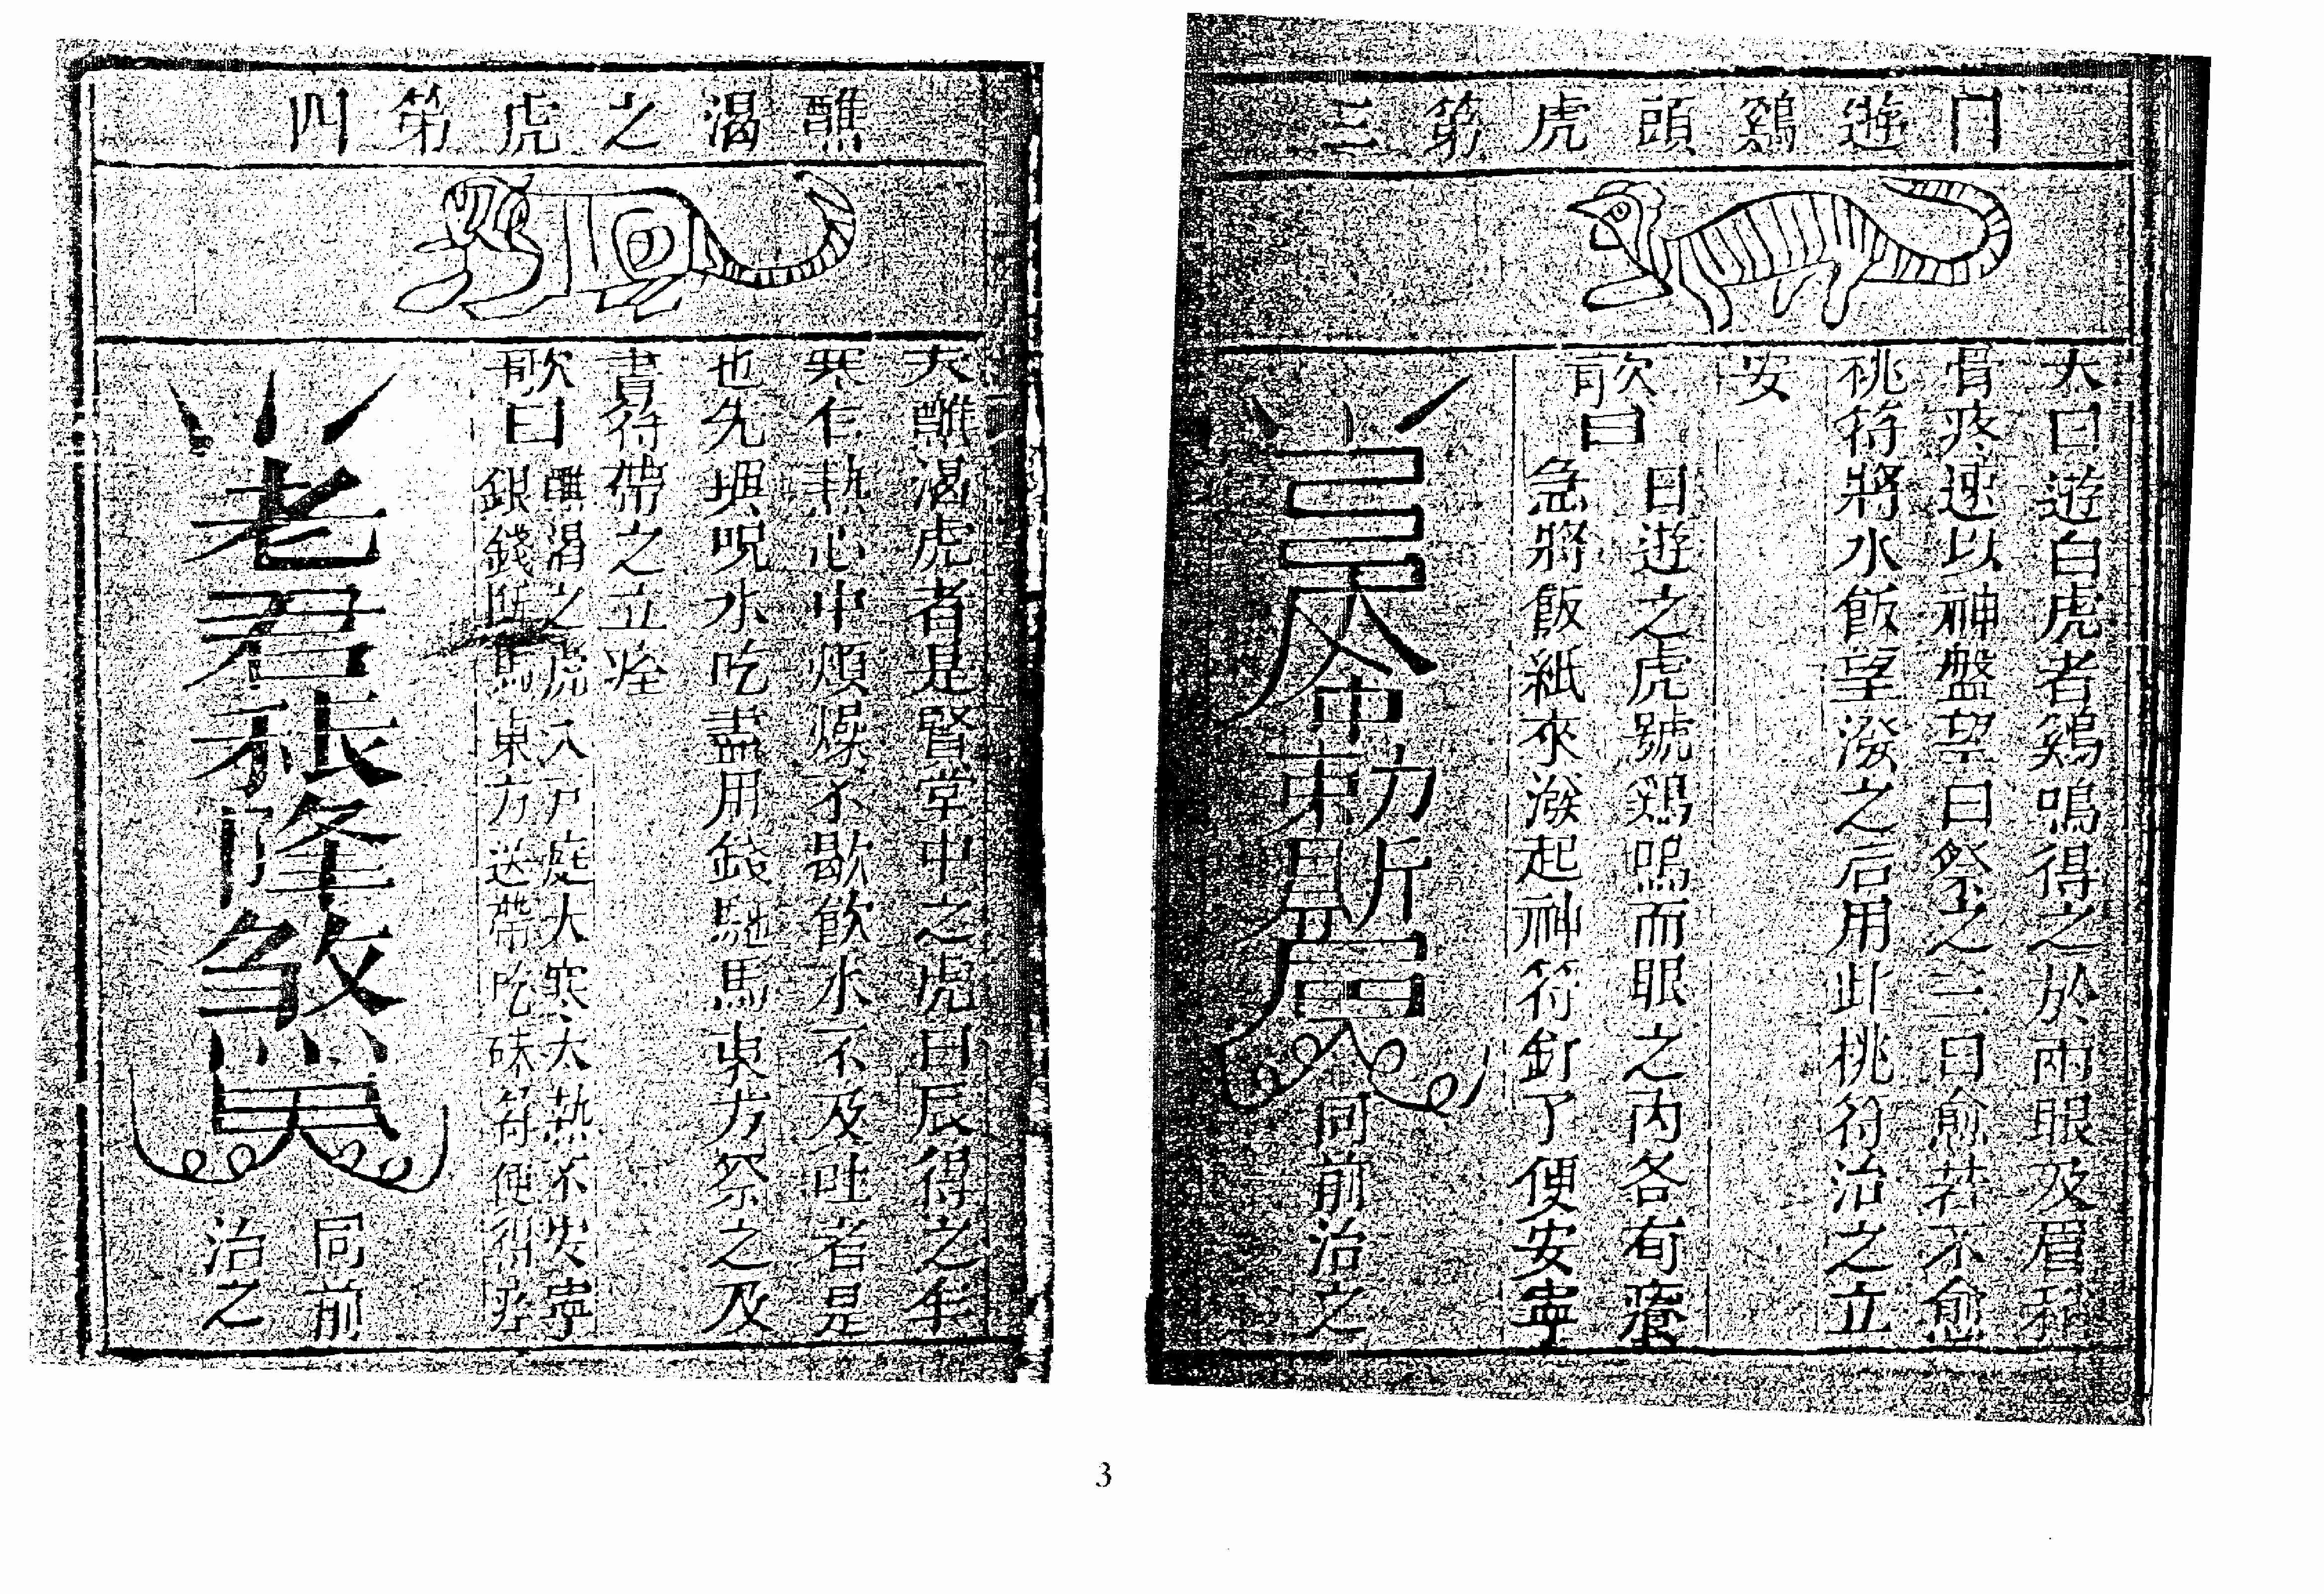 日遊鷄頭虎第三
夫曰遊白虎者鷄鳴得之於兩眼及眉
骨疼速以神盤望日祭之三日愈若不愈
桃符將水飯望潑之后用此桃符治之立
安
歌曰
日遊之虎號鷄鳴而眼之內各有
急將飯紙來潑起神符釘了便安寧
同前治之
醮渴之虎第四
夫醮渴虎者是賢堂中之虎日辰得之乍
寒乍熱心中煩燥不歇飲水不及吐者是
也先 呪水吃盡用錢馳馬東方祭之及
書符帶之立痊
歌曰
醮渴之虎入戶庭大寒大熱不安寧
銀錢 馬東方送帶吃硃符便得
老君
煞
同前
治之
3